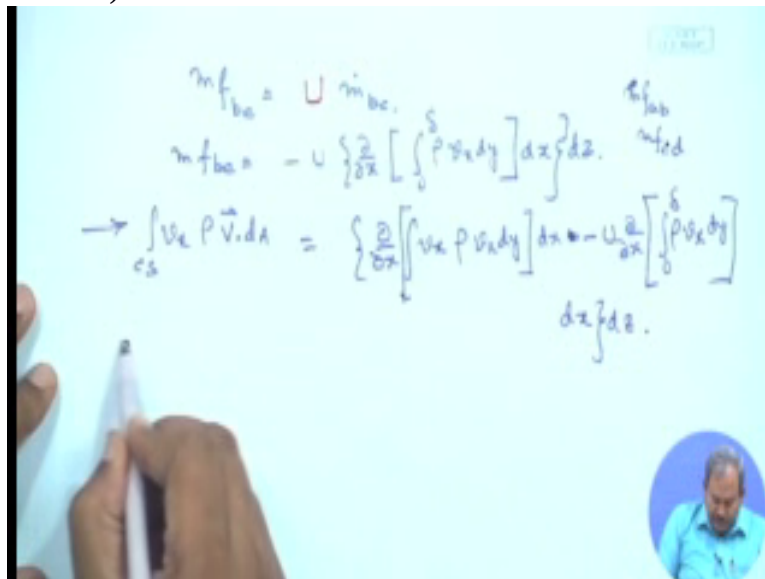 mf_bc = U ṁ_bc. mf_ab
mf_bc = - U { ∂/∂x [ ∫_0^δ ρ v_x dy ] dx } dz. mf_cd
→ ∫_cs v_x ρ V⃗.dA = { ∂/∂x [ ∫ v_x ρ v_x dy ] dx - U ∂/∂x [ ∫_0^δ ρ v_x dy ]
dx } dz.